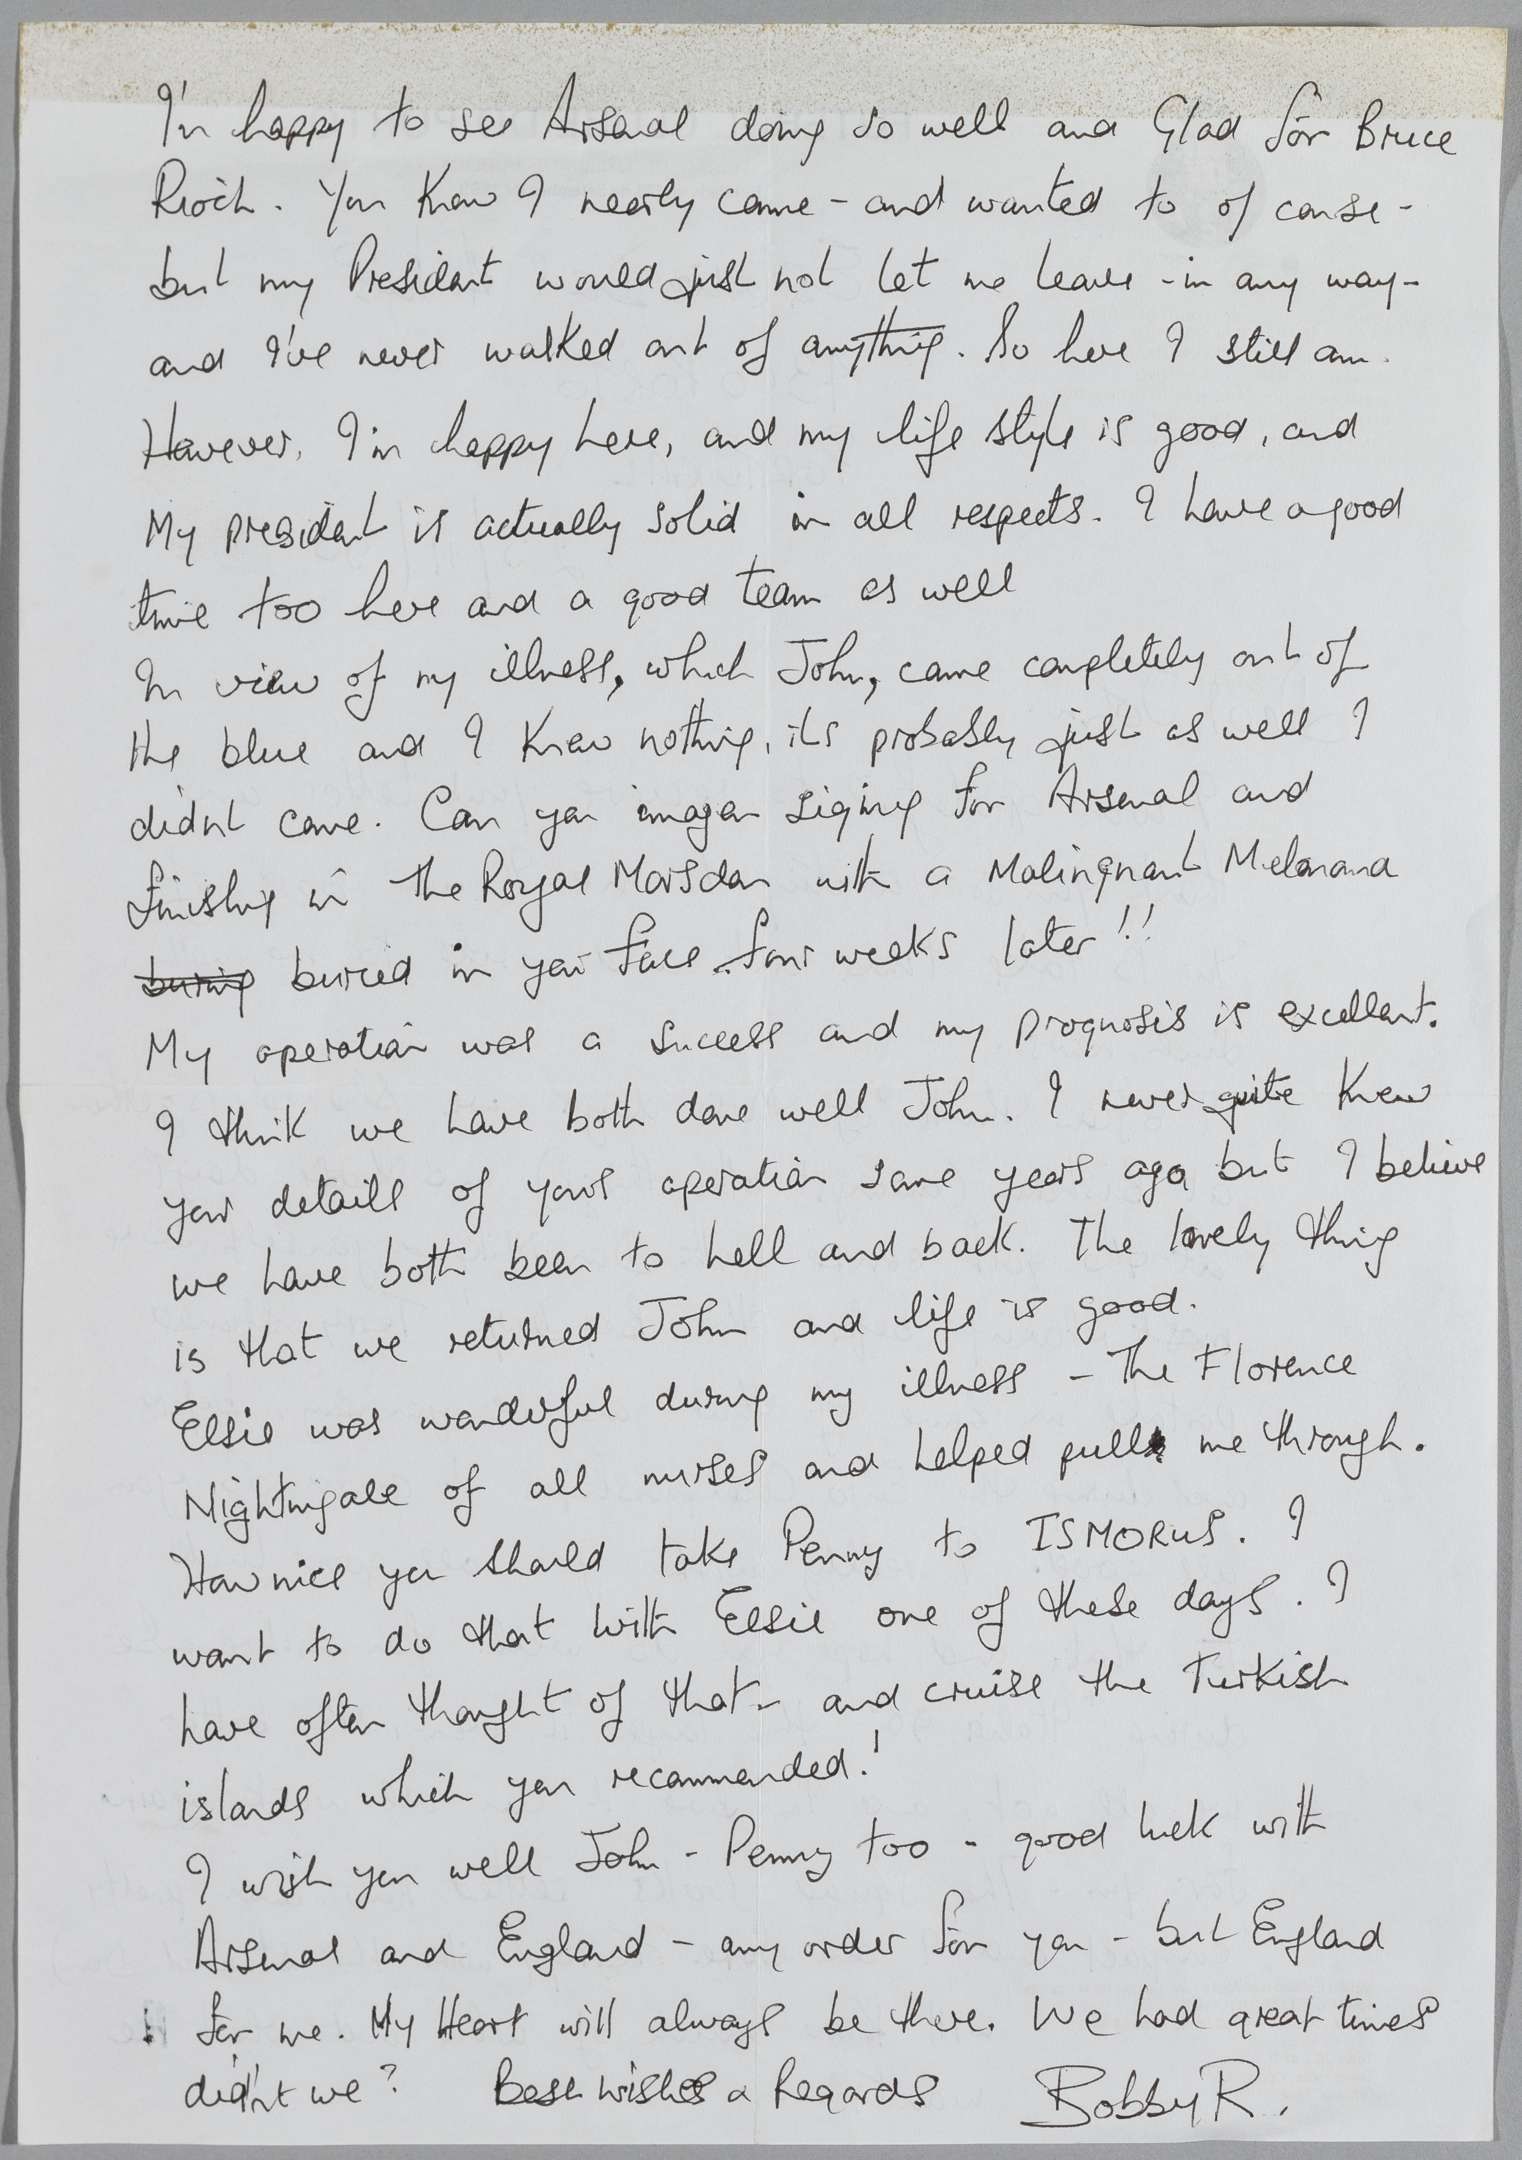 I'm happy to see Arsenal doing so well and Glad for Bruce
Rioch. You Know I nearly came - and wanted to of course -
but my President would just not let me leave - in any way -
and I've never walked out of anything. So here I still am.
However, I'm happy here, and my life style is good, and
My president is actually solid in all respects. I have a good
time too here and a good team as well
In view of my illness, which John, came completely out of
the blue and I Knew nothing, its probably just as well I
didnt come. Can you imagen signing for Arsenal and
finishing in The Royal Marsdan with a Malingnant Melanoma
buring buried in your face four weeks later!!
My operation was a success and my prognosis is excellent.
I think we have both done well John. I never quite Knew
your details of yours operation some years ago but I believe
we have both been to hell and back. The lovely thing
is that we returned John and life is good.
Elsie was wonderful during my illness - The Florence
Nightingale of all nurses and helped pull me through.
How nice you should take Penny to ISMORUS. I
want to do that with Elsie one of these days. I
have often thought of that - and cruise the Turkish
islands which you recommended!
I wish you well John - Penny too - good luck with
Arsenal and England - any order for you - but England
for me. My Heart will always be there. We had great times
didn't we? Best wishes & Regards Bobby R.